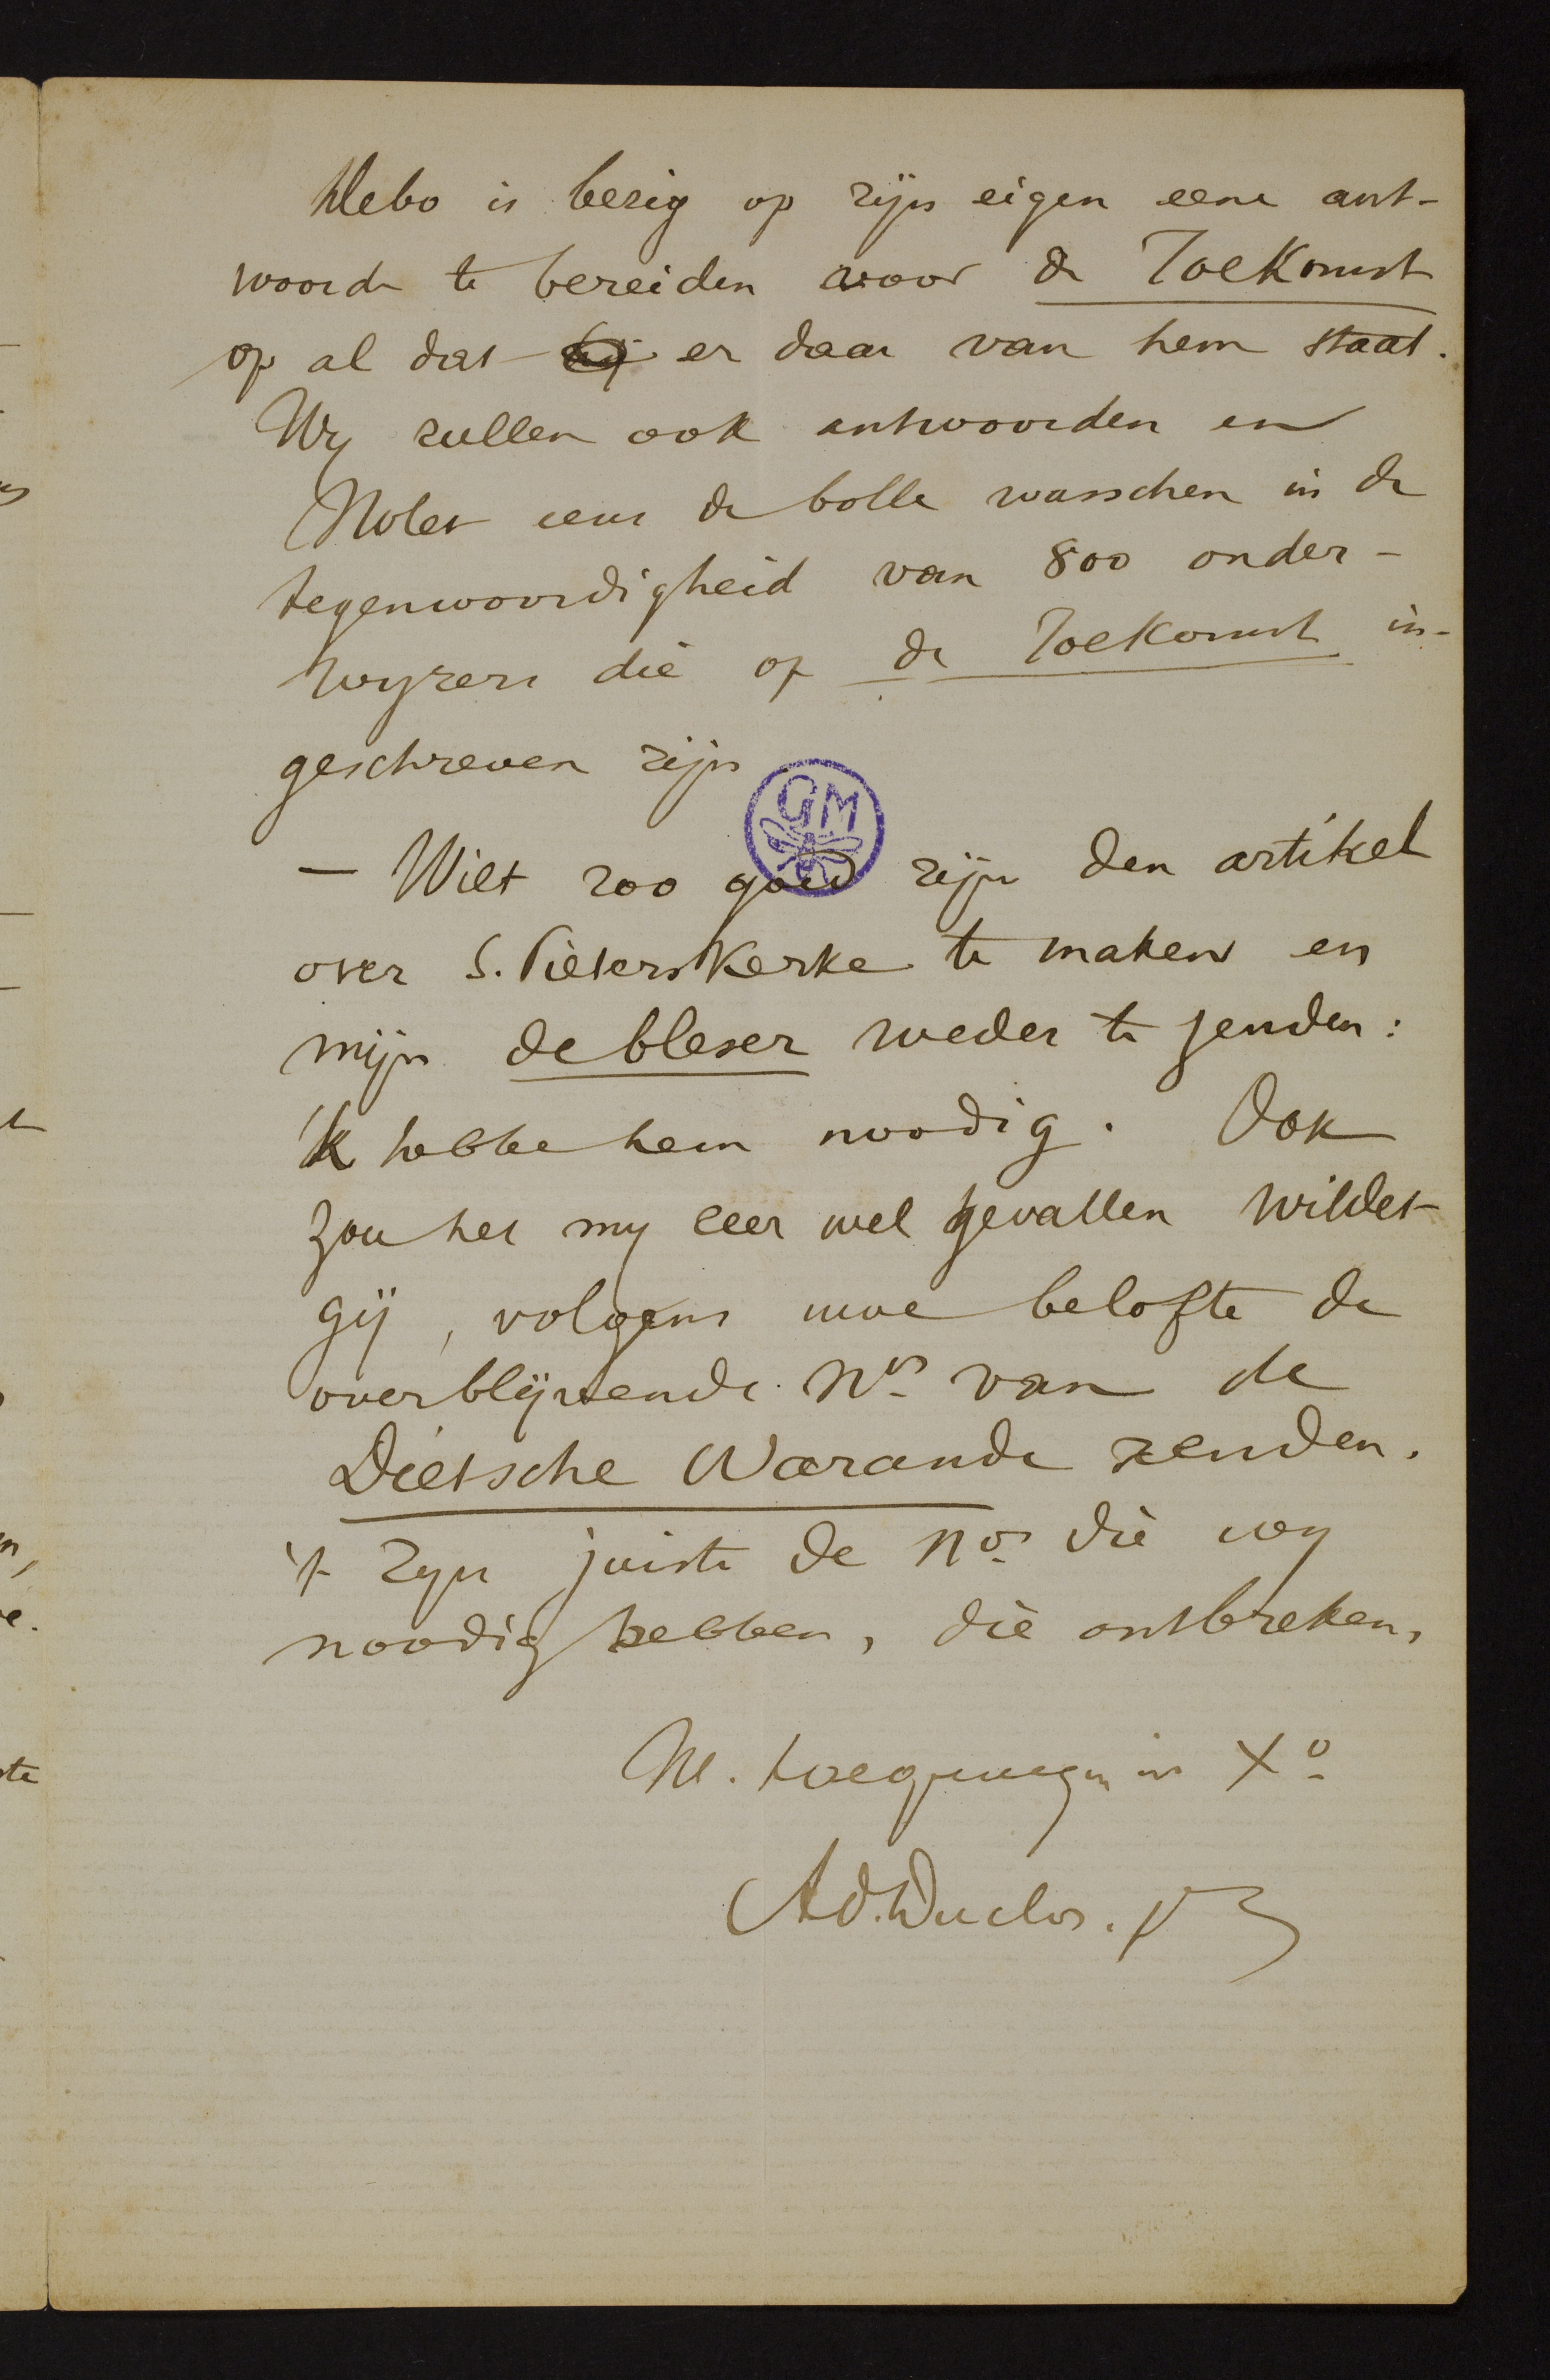 Debo is bezig op zijn eigen eene ant-
woorde te bereiden voor de Toekomst
op al dat er daar van hem staat.
Wy zullen ook antwoorden en
Nolet eens de bolle wasschen in de
tegenwoordigheid van 800 onder-
wyzers die op de Toekomst in-
geschreven zijn
GM
— Wilt zoo goed zijn den artikel
over S. Pieterskerke te maken en
mijn de bleser weder te zenden:
'k hebbe hem noodig. Ook
zou het my zeer wel gevallen wildet
gij, volgens uwe belofte de
overblijvende Nos van de
Dietsche Warande zenden.
't Zyn juiste de nos die wy
noodig hebben, die ontbreken,
Ul. toegenegen in Xo
Ad. Duclos. pr